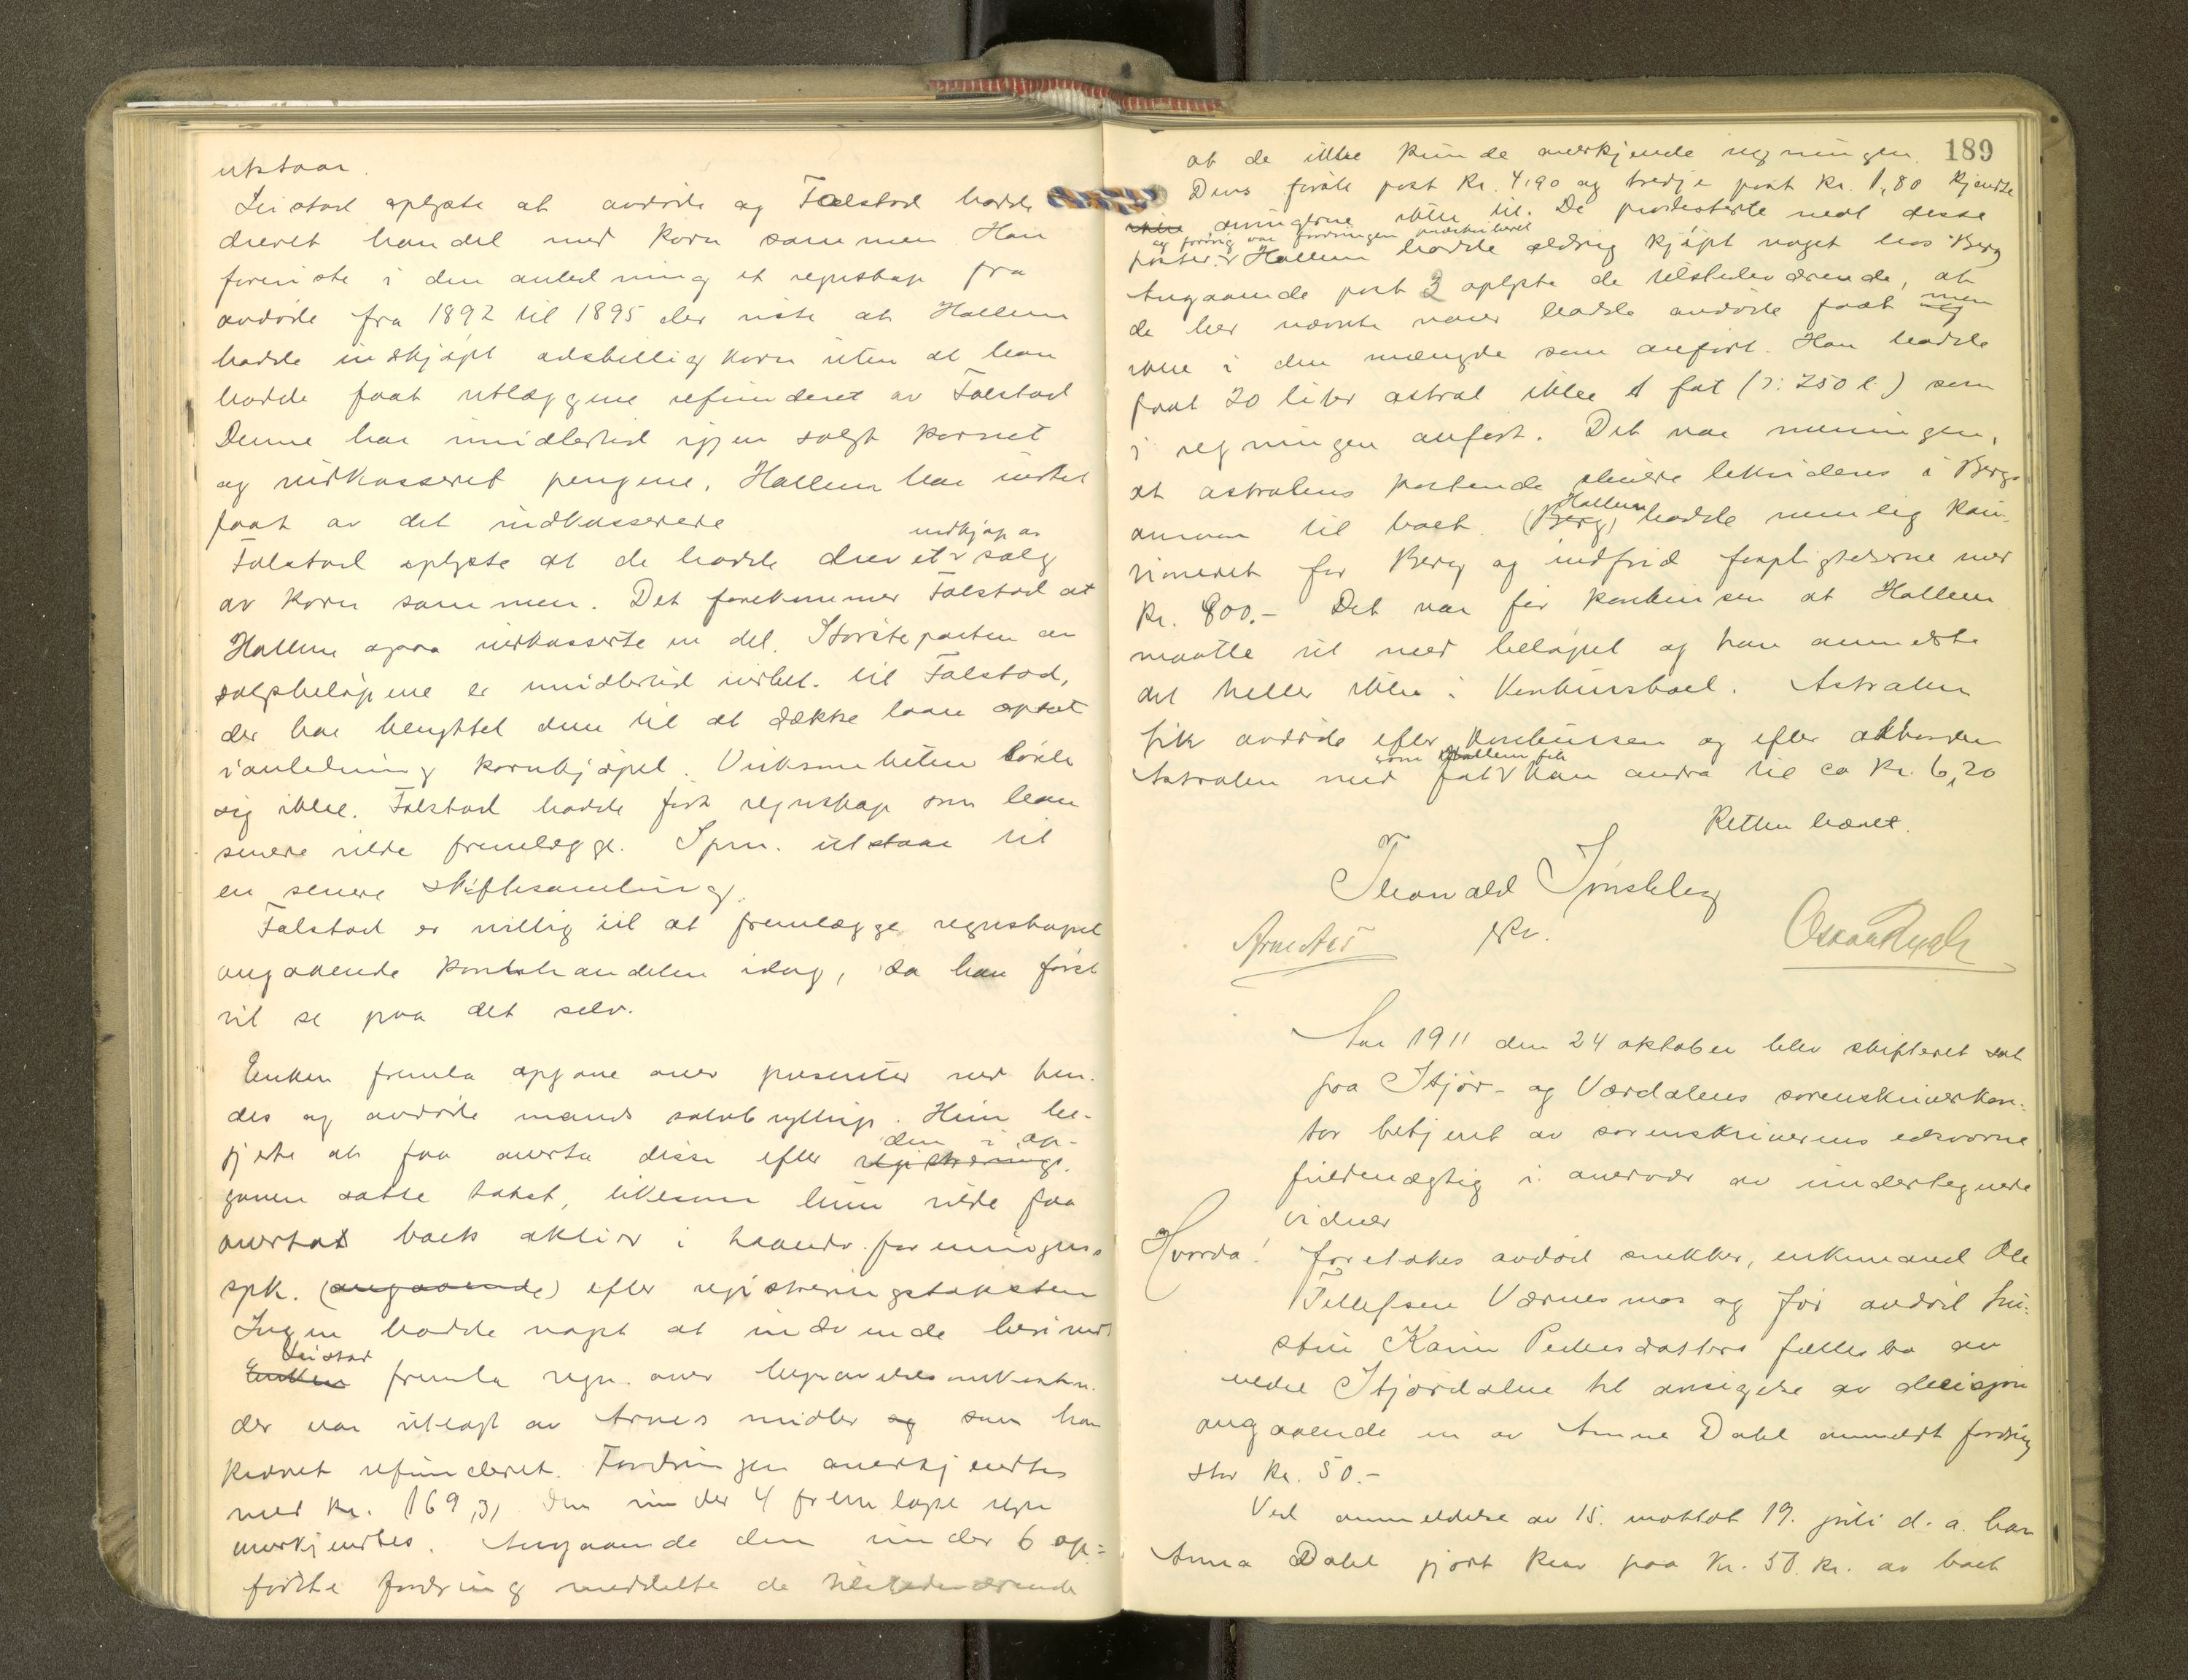 utstaar.
Leistad oplyste at avdøde og Falstad hadde
drevet handel med korn sammen Han
foreviste i den anledning et regnskap fra
avdøde fra 1892 til 1895 der viste at Hallem
hadde indkjøpt adskillig korn uten at han
hadde faat utlæggene refunderet av Falstad
Denne har imidlertid igjen solgt kornet
og indkasseret pengene. Hallem har intet
faat av det indkasserede
indkjøp av
Falstad oplyste at de hadde drevet salg
av korn sammen. Det forekommer Falstad at
Hallem ogsaa indkasserte en del. Største parten av
salgsbeløpene er imidlertid indbet. til Falstad,
der har benyttet dem til at dække laan optat
i anledning kornkjøpet. Virksomheten lønte
sig ikke. Falstad hadde ført regnskap som han
senere vilde fremlægge. Spm. utstaar til
en senere skiftesamling.
Falstad er villig til at fremlægge regnskapet
angaaende kornhandelen idag, da han først
vil se paa det selv.
Enken fremla opgave over presenter ved hen-
des og avdøde mands sølvbryllup. Hun be-
den i op-
gjerte at faa overta disse efter registrerings.
gaven satte takst, likesom hun vilde faa
overtat boets aktier i haandv. foreningens
spk. (angaaende) efter registreringstaksten
Ingen hadde noget at indvende herimot
Leistad
Enken fremla regn. over begravelsesomkostn.
der var utlagt av Arnes midler og som han
krævet refunderet. Fordringen anerkjendtes
med kr. 169,31 Den under 4 fremlagte regn
anerkjendtes. Angaaende den under 6 op=
førte fordring meddelte de tilstedeværende
189
at de ikke kunde anerkjende regningen.
Dens første post kr. 4,90 og tredje post kr. 1,80 kjendte
ikke arvingerne ikke til. De protesterte mot disse
og forøvrig var fordringen prækriberet
poster. Hallem hadde aldrig kjøpt noget hos Berg
Angaaende post 3 oplyste de tilstedeværende, at
de her nævnte varer hadde avdøde faat og men
ikke i den mængde som anført. Han hadde
faat 20 liter astral ikke 1 fat (ɔ: 250 l.) som
i regningen anført. Det var meningen,
at astralens paalydende skulde likvideres i Bergs
Hallem
ansvar til boet. (Berg) hadde nemlig kau-
sioneret for Berg og indfrid forpligtelserne med
kr. 800.- Det var før konkursen at Hallem
maatte ut med beløpet og han anmeldte
det heller ikke i konkursboet. Astralen
fik avdøde efter konkursen og efter akkorden
som Hallem fik
Astralen med fat kan andra til ca kr. 6,20
Retten hævet.
Thorvald Tønsberg
fkv.
Arne Aas
Oscar Rygh
Aar 1911 den 24 oktober blev skifteret sat
paa Stjør- og Værdalens sorenskriverkon-
tor betjent av sorenskriverens edsvorne
fuldmægtig i overvær av undertegnede
vidner
Hvorda! foretokes avdød snekker, enkemand Ole
Tellefsen Værnesmo og før avdød hu-
stru Karen Pedersdatters fællesbo av
nedre Stjørdalen til avsigelse av decisjon
angaaende en av Anne Dahl anmeldt fordring
stor kr. 50.-
Ved anmeldelse av 15. mottat 19. juli d. a. har
Anna Dahl gjort krav paa kr. 50 kr. av boet